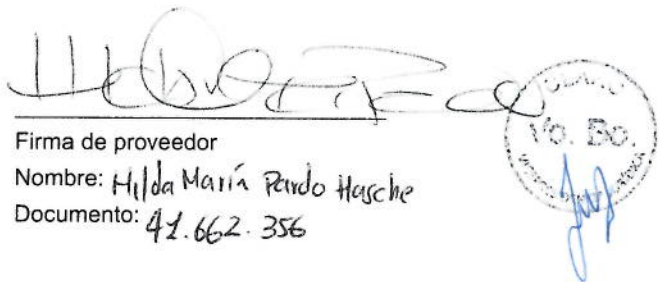 Firma de proveedor
Nombre: Hilda María Pardo Hasche
Documento: 41.662.356
CLARO
Vo. Bo.